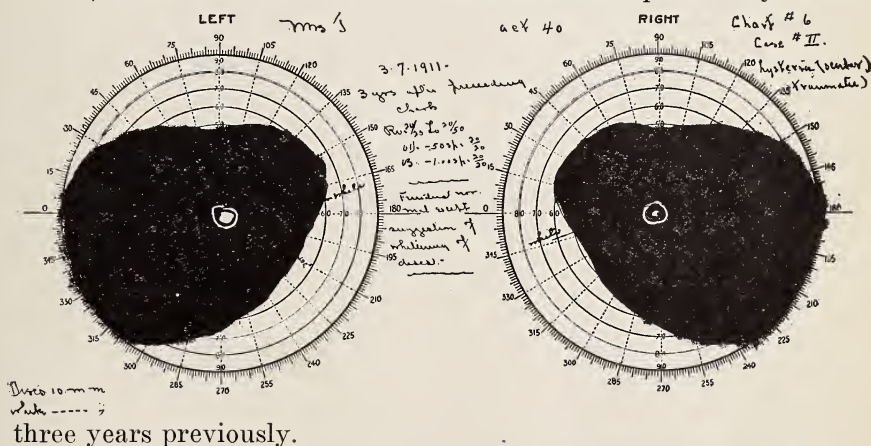 LEFT
Mrs J
aet 40
RIGHT
Chart # 6
Case # II.
hysteria (ocular)
traumatic)
3-7-1911-
3 yrs after preceding
charts
20/50
-.50 sp. = 20/20
-1.00 sp. = 20/20
Fundus nor-
mal
suggestion of
whitening of
discs.-
white
white
Discs 10 m m
white ----- ;
three years previously.